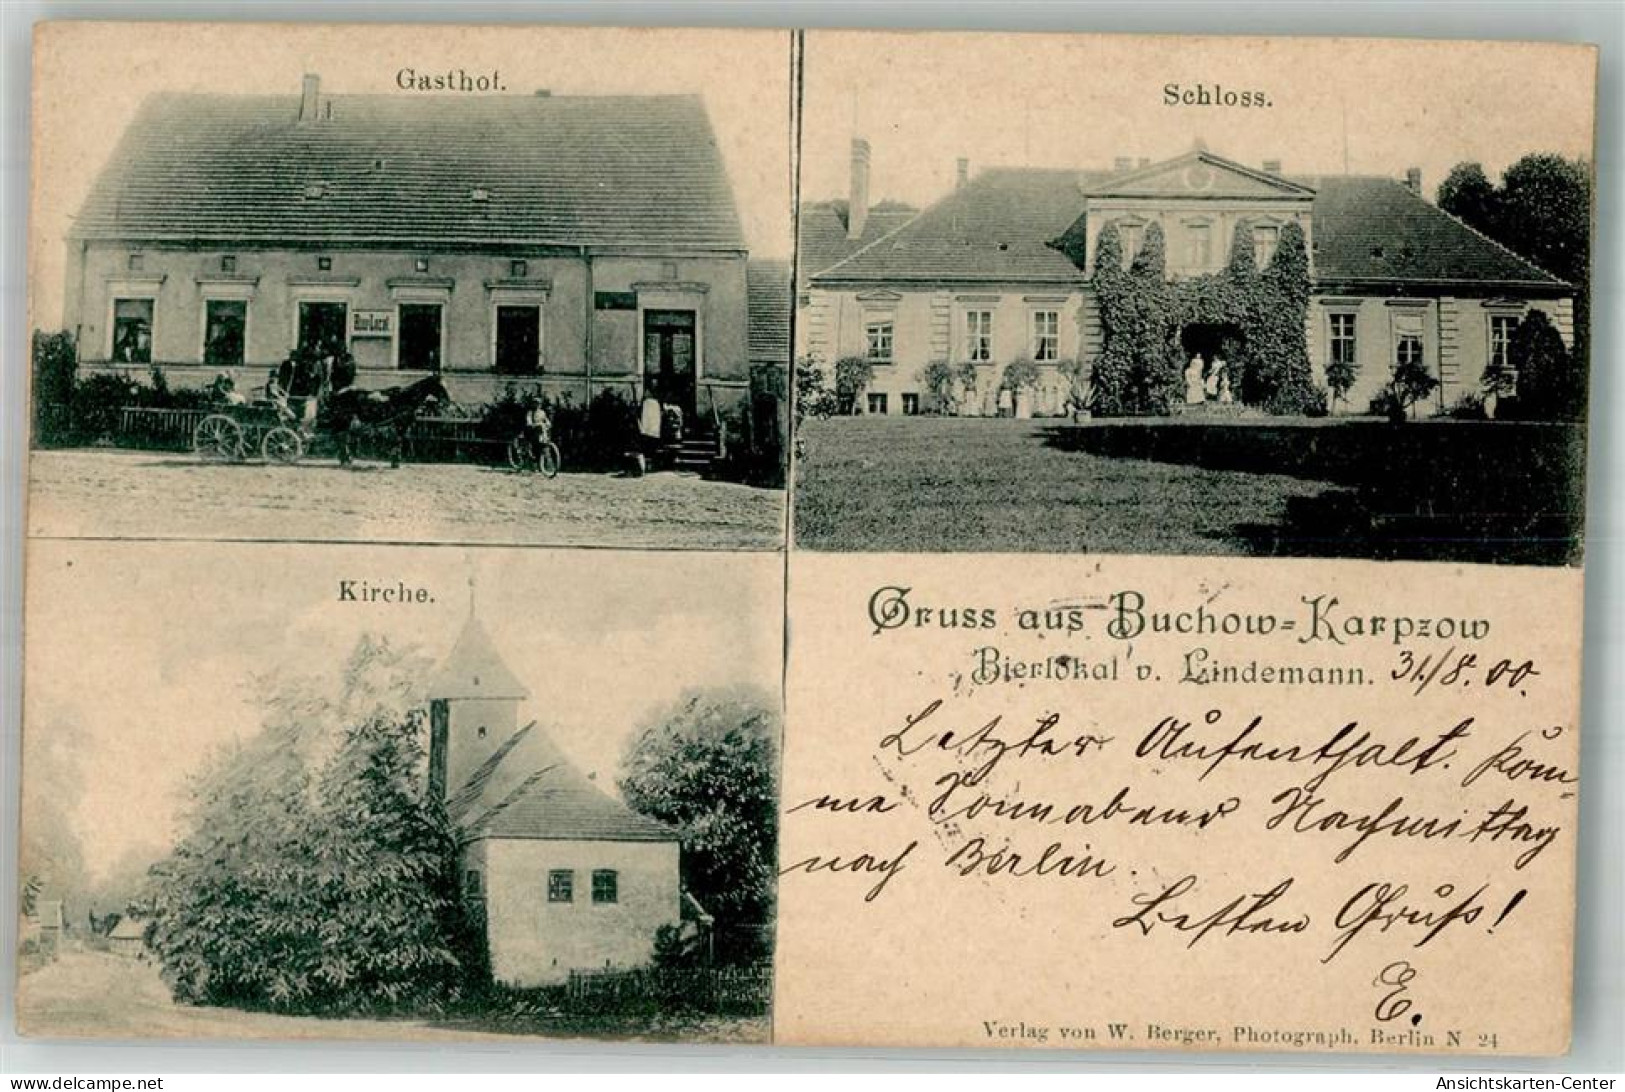 Gasthof.
Schloss.
Bier-Local
Kirche.
Gruss aus Buchow-Karpzow
Bierlokal v. Lindemann. 31./8. 00.
Letzter Aufenthalt. Kom-
me Sonnabend Nachmittag
nach Berlin.
Besten Gruß!
E.
Verlag von W. Berger, Photograph, Berlin N 24
Ansichtskarten-Center